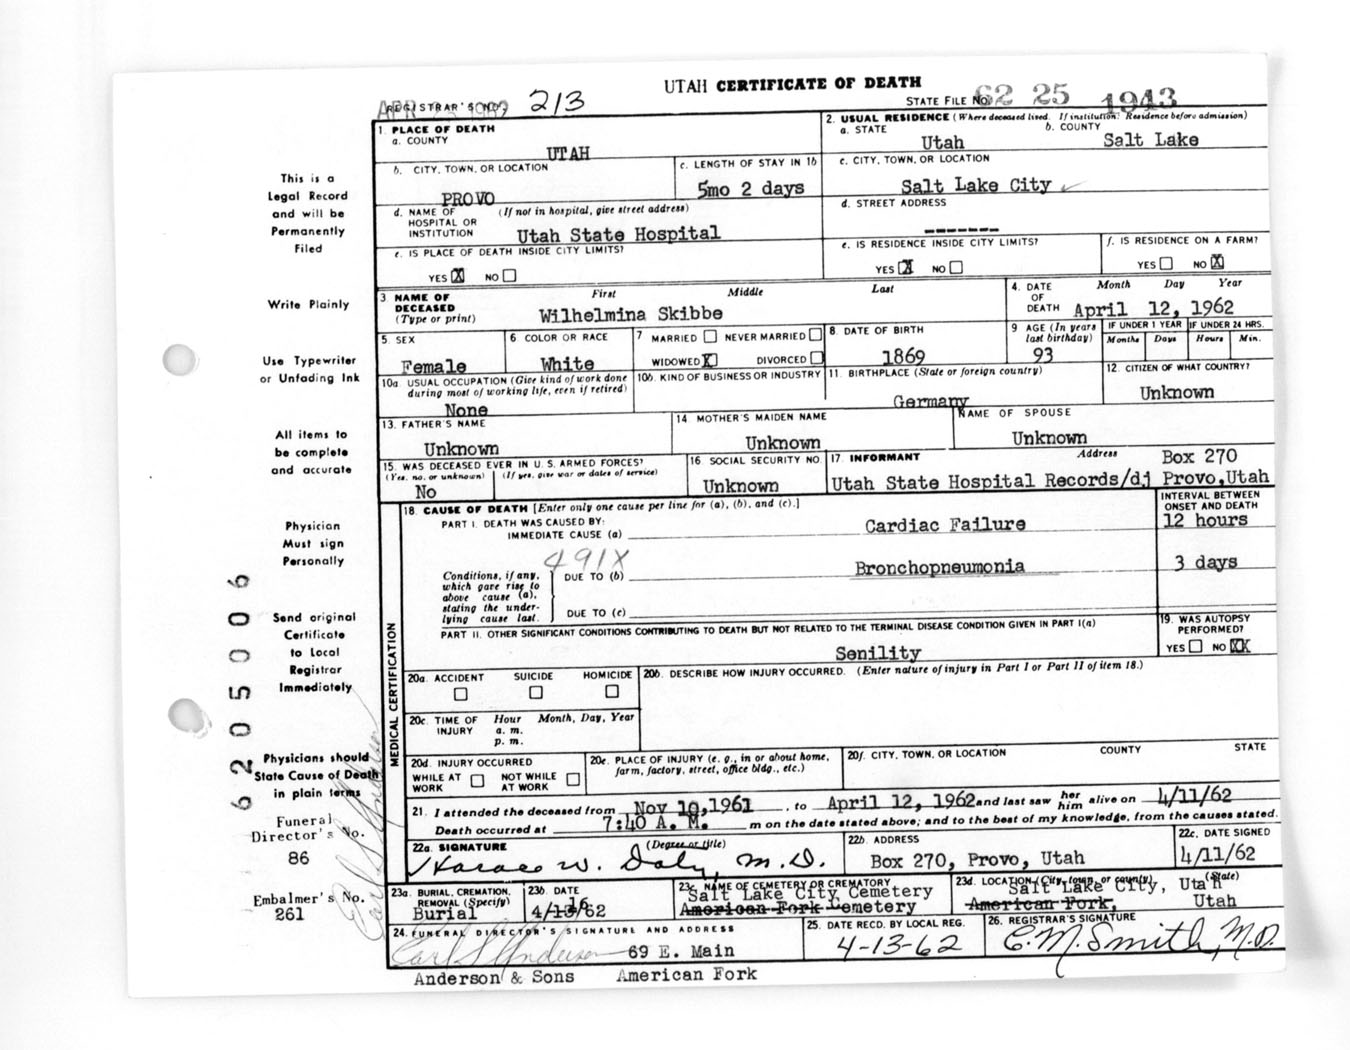 UTAH CERTIFICATE OF DEATH
REGISTRAR'S NO. 213
STATE FILE NO. 62 25 1943
1. PLACE OF DEATH
a. COUNTY
UTAH
2. USUAL RESIDENCE (Where deceased lived. If institution: Residence before admission)
a. STATE b. COUNTY
Utah Salt Lake
b. CITY, TOWN, OR LOCATION
PROVO
c. LENGTH OF STAY IN 1b
5mo 2 days
c. CITY, TOWN, OR LOCATION
Salt Lake City
d. NAME OF HOSPITAL OR INSTITUTION (If not in hospital, give street address)
Utah State Hospital
d. STREET ADDRESS
-------
e. IS PLACE OF DEATH INSIDE CITY LIMITS?
YES X NO
e. IS RESIDENCE INSIDE CITY LIMITS?
YES X NO
f. IS RESIDENCE ON A FARM?
YES NO X
3. NAME OF DECEASED (Type or print) First Middle Last
Wilhelmina Skibbe
4. DATE OF DEATH Month Day Year
April 12, 1962
5. SEX
Female
6 COLOR OR RACE
White
7 MARRIED NEVER MARRIED
WIDOWED X DIVORCED
8. DATE OF BIRTH
1869
9 AGE (In years last birthday)
93
IF UNDER 1 YEAR IF UNDER 24 HRS.
Months Days Hours Min.
10a. USUAL OCCUPATION (Give kind of work done during most of working life, even if retired)
None
10b. KIND OF BUSINESS OR INDUSTRY
11. BIRTHPLACE (State or foreign country)
Germany
12. CITIZEN OF WHAT COUNTRY?
Unknown
13. FATHER'S NAME
Unknown
14 MOTHER'S MAIDEN NAME
Unknown
NAME OF SPOUSE
Unknown
15. WAS DECEASED EVER IN U. S. ARMED FORCES?
(Yes, no, or unknown) (If yes, give war or dates of service)
No
16 SOCIAL SECURITY NO.
Unknown
17 INFORMANT Address
Box 270
Utah State Hospital Records/dj Provo,Utah
18. CAUSE OF DEATH [Enter only one cause per line for (a), (b), and (c).]
INTERVAL BETWEEN ONSET AND DEATH
PART I. DEATH WAS CAUSED BY:
IMMEDIATE CAUSE (a) Cardiac Failure 12 hours
491X
Conditions, if any, which gave rise to above cause (a), stating the underlying cause last.
DUE TO (b) Bronchopneumonia 3 days
DUE TO (c)
PART II. OTHER SIGNIFICANT CONDITIONS CONTRIBUTING TO DEATH BUT NOT RELATED TO THE TERMINAL DISEASE CONDITION GIVEN IN PART I(a)
Senility
19. WAS AUTOPSY PERFORMED?
YES NO XX
MEDICAL CERTIFICATION
20a. ACCIDENT SUICIDE HOMICIDE
20b. DESCRIBE HOW INJURY OCCURRED. (Enter nature of injury in Part I or Part II of item 18.)
20c. TIME OF INJURY Hour Month, Day, Year
a. m.
p. m.
20d. INJURY OCCURRED
WHILE AT WORK NOT WHILE AT WORK
20e. PLACE OF INJURY (e. g., in or about home, farm, factory, street, office bldg., etc.)
20f. CITY, TOWN, OR LOCATION COUNTY STATE
21. I attended the deceased from Nov 10,1961, to April 12, 1962 and last saw her him alive on 4/11/62
Death occurred at 7:40 A. M. m on the date stated above; and to the best of my knowledge, from the causes stated.
22a. SIGNATURE (Degree or title)
Horace W. Daly, M.D.
22b. ADDRESS
Box 270, Provo, Utah
22c. DATE SIGNED
4/11/62
23a. BURIAL, CREMATION, REMOVAL (Specify)
Burial
23b. DATE
16
4/13/62
23c. NAME OF CEMETERY OR CREMATORY
Salt Lake City Cemetery
American Fork Cemetery
23d. LOCATION (City, town, or county) (State)
Salt Lake City, Utah
American Fork, Utah
24. FUNERAL DIRECTOR'S SIGNATURE AND ADDRESS
Earl S Anderson 69 E. Main
Anderson & Sons American Fork
25. DATE RECD. BY LOCAL REG.
4-13-62
26. REGISTRAR'S SIGNATURE
E.M. Smith, M.D.
This is a
Legal Record
and will be
Permanently
Filed
Write Plainly
Use Typewriter
or Unfading Ink
All items to
be complete
and accurate
Physician
Must sign
Personally
Send original
Certificate
to Local
Registrar
Immediately
Physicians should
State Cause of Death
in plain terms
Funeral
Director's No.
86
Embalmer's No.
261
6205006
Earl S Anderson